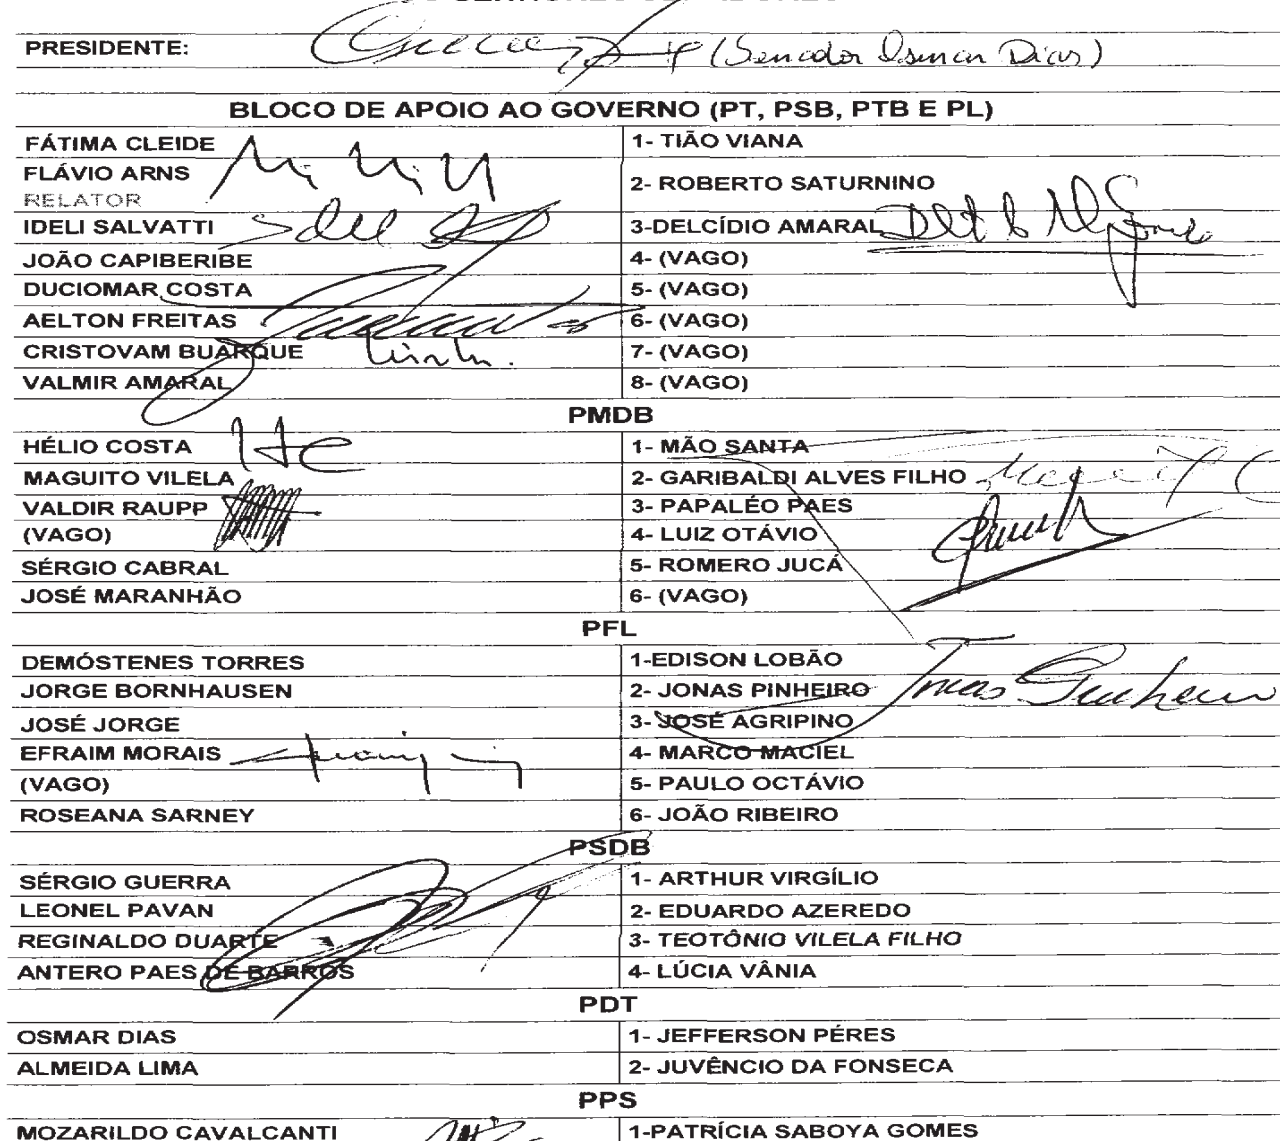 PRESIDENTE: (Senador Osmar Dias)
BLOCO DE APOIO AO GOVERNO (PT, PSB, PTB E PL)
FÁTIMA CLEIDE
1- TIÃO VIANA
FLÁVIO ARNS
RELATOR
2- ROBERTO SATURNINO
IDELI SALVATTI
3-DELCÍDIO AMARAL
JOÃO CAPIBERIBE
4- (VAGO)
DUCIOMAR COSTA
5- (VAGO)
AELTON FREITAS
6- (VAGO)
CRISTOVAM BUARQUE
7- (VAGO)
VALMIR AMARAL
8- (VAGO)
PMDB
HÉLIO COSTA
1- MÃO SANTA
MAGUITO VILELA
2- GARIBALDI ALVES FILHO
VALDIR RAUPP
3- PAPALÉO PAES
(VAGO)
4- LUIZ OTÁVIO
SÉRGIO CABRAL
5- ROMERO JUCÁ
JOSÉ MARANHÃO
6- (VAGO)
PFL
DEMÓSTENES TORRES
1-EDISON LOBÃO
JORGE BORNHAUSEN
2- JONAS PINHEIRO Jonas Pinheiro
JOSÉ JORGE
3- JOSÉ AGRIPINO
EFRAIM MORAIS
4- MARCO MACIEL
(VAGO)
5- PAULO OCTÁVIO
ROSEANA SARNEY
6- JOÃO RIBEIRO
PSDB
SÉRGIO GUERRA
1- ARTHUR VIRGÍLIO
LEONEL PAVAN
2- EDUARDO AZEREDO
REGINALDO DUARTE
3- TEOTÔNIO VILELA FILHO
ANTERO PAES DE BARROS
4- LÚCIA VÂNIA
PDT
OSMAR DIAS
1- JEFFERSON PÉRES
ALMEIDA LIMA
2- JUVÊNCIO DA FONSECA
PPS
MOZARILDO CAVALCANTI
1-PATRÍCIA SABOYA GOMES